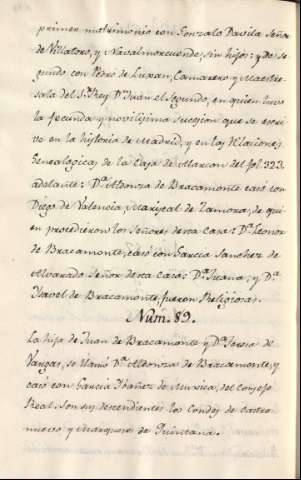 primer matrimonio con Gonzalo Davila Señor
de Villatoro, y Navalmorcuende, sin hijos: y de se
gundo con Pedro de Luxan, Camarero y Maestre
sala del S.r Rey D.n Juan el Segundo, en quien tuvo
la fecunda y novilisima succesion que se escri
ve en la historia de Madrid, y en las Relaciones
Genealogicas de la Casa de Alarcon del fol. 323.
adelante: D.ª Aldonza de Bracamonte casó con
Diego de Valencia, Mariscal de Zamora, de qui
en procedieron los Señores de esta Casa: D.ª Leonor
de Bracamonte, casó con Garcia Sanchez de
Alvarado Señor de esta Casa: D.ª Juana, y D.ª
Ysavel de Bracamonte, fueron Religiosas.
Num. 89.
La hija de Juan de Bracamonte y D.ª Teresa de
Vargas, se llamó D.ª Aldonza de Bracamonte, y
casó con Garcia Ybañez de Muxica, del Consejo
Real. Son sus descendientes los Condes de Castro
nuevo y Marqueses de Quintana.